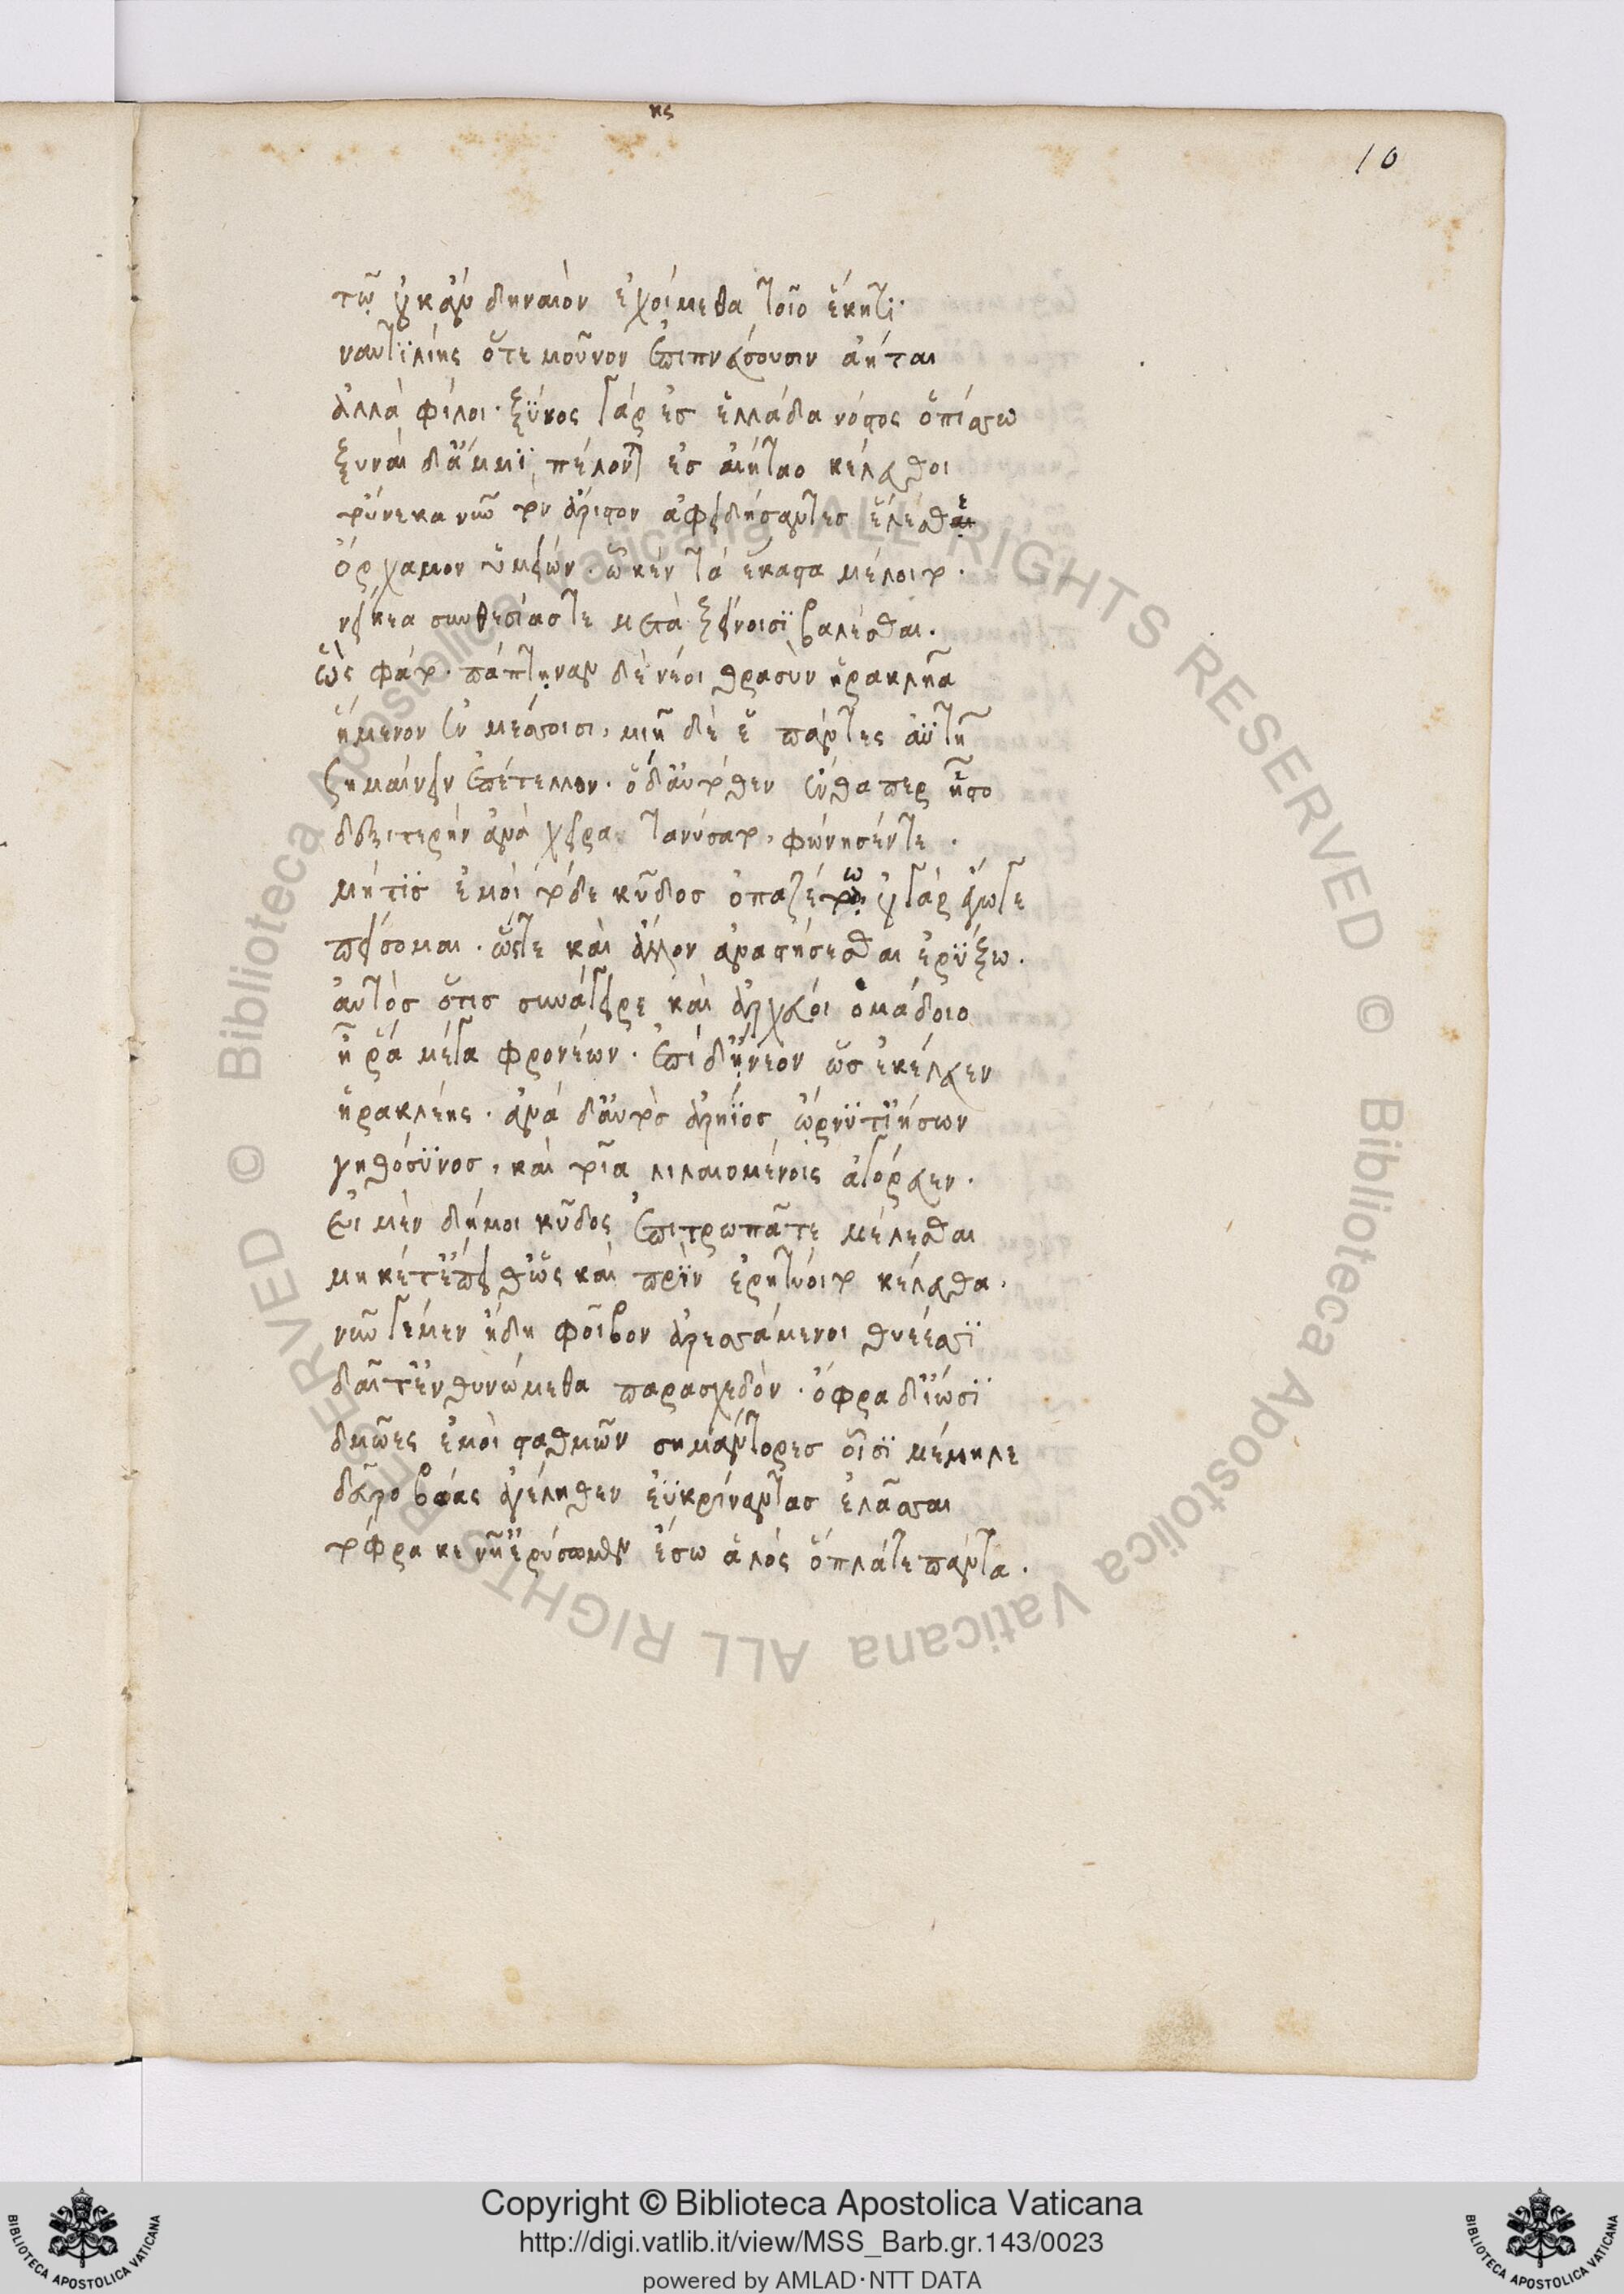 κς
10
τῷ οὐκ ἂν δηναιὸν ἐχοίμεθα τοῖο ἕκητι·
ναυτϊλίης ὅτε μοῦνον ἐπιπνεύσουσιν ἀῆται
ἀλλὰ φίλοι· ξϋνος γάρ ἐσ ἑλλάδα νόστος ὀπίσσω
ξυναὶ δ' ἄμμϊ πέλονται ἐσ αἰήταο κέλευθοι
τούνεκα νῦν τὸν ἄριστον ἀφειδήσαντεσ ἕλεσθε
ὄρχαμον ὑμείων. ὧ κέν τὰ ἕκαστα μέλοιτο.
νείκεα συνθεσίαστε μετὰ ξείνοισϊ βαλέσθαι.
ὣς φάτο. πάπτηναν δὲ νέοι θρασὺν ἡρακλῆα
ἥμενον ἐν μέσσοισι, μιῇ δὲ ἑ πάντες ἀϋτῇ
σημαίνειν ἐπέτελλον. ὁ δ' αὐτόθεν ἔνθα περ ἧστο
δεξιτερὴν ἀνὰ χεῖρα τανύσατο, φώνησέν τε.
μήτϊσ ἐμοὶ τόδε κῦδοσ ὀπαζέτω οὐ γὰρ ἔγωγε
πείσομαι. ὥστε καὶ ἄλλον ἀναστήσεσθαι ἐρύξω.
αὐτὸσ ὅτισ συνάγειρε καὶ ἀρχεύοι ὁμάδοιο
ἦ ῥά μέγα φρονέων. ἐπὶ δ' ᾔνεον ὡσ ἐκέλευεν
ἡρακλέης. ἀνὰ δ' αὐτὸσ ἀρήϊος ὤρνϋτ' ϊήσων
γηθόσϋνοσ, καὶ τοῖα λιλαιομένοις ἀγόρευεν.
εἰ μὲν δή μοι κῦδος ἐπιτρωπᾶτε μέλεσθαι
μηκέτ' ἔπειθ' ὡς καὶ πρϊν ἐρητύοιτο κέλευθα.
νῦν γε μὲν ἤδη φοῖβον ἀρεσσάμενοι θυέεσσϊ
δαῖτ' ἐντϋνώμεθα παρασχεδόν. ὄφρα δ' ἴωσϊ
δμῶες ἐμοὶ σταθμῶν σημάντορεσ οἷσϊ μέμηλε
δεῦρο βόας ἀγέληθεν ἐϋκρίναντασ ἐλᾶσσαι
τόφρα κε νῆ' ἐρύσαιμεν ἔσω ἁλός ὅπλά τε πάντα.
Copyright © Biblioteca Apostolica Vaticana
http://digi.vatlib.it/view/MSS_Barb.gr.143/0023
powered by AMLAD·NTT DATA